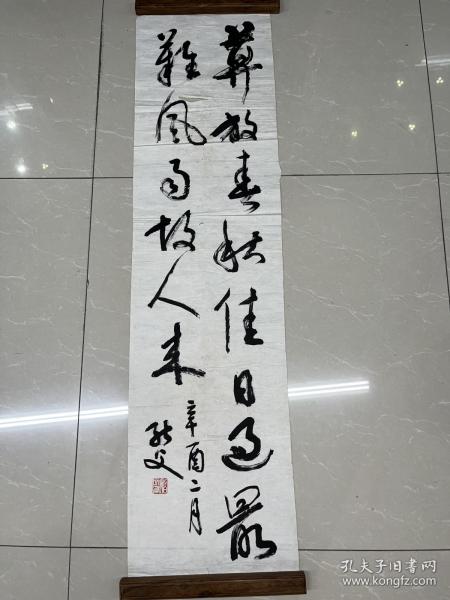 莫放春秋佳日過最
難風雨故人来
辛酉二月
孔夫子旧书网
www.kongfz.com